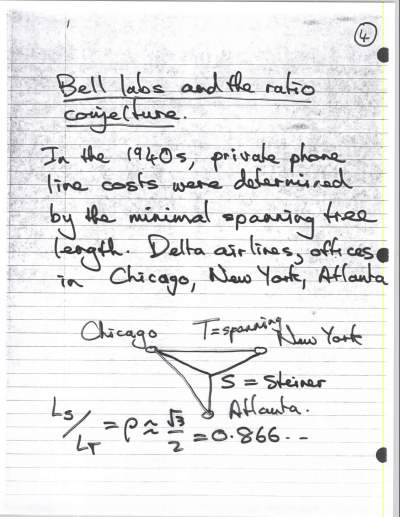 4
Bell labs and the ratio
conjecture.
In the 1940s, private phone
line costs were determined
by the minimal spanning tree
length. Delta airlines, offices
in Chicago, New York, Atlanta
Chicago T=spanning New York
S = Steiner
Atlanta.
Ls/LT = ρ ≈ √3/2 = 0.866..